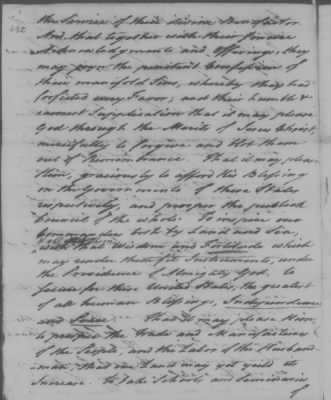 the Service of their divine Benefactor
432
And that together with their sincere
Acknowledgments and Offerings, they
may joyn the penitent Confession of
their manifold Sins, whereby they had
forfeited every Favor; and their humble &
earnest Supplication that it may please
God through the Merits of Jesus Christ,
mercifully to forgive and blot them
out of Remembrance. That it may please
Him, graciously to afford his Blessing
on the Governments of these States
respectively, and prosper the publick
Council of the whole. To inspire our
Commanders both by Land and Sea,
with that Wisdom and Fortitude which
may render them fit Instruments, under
the Providence of Almighty God, to
secure for these United States, the greatest
of all human Blessings, Independence
and Peace. That it may please Him,
to prosper the Trade and Manufactures
of the People, and the Labor of the Husband-
man, that our Land may yet yield its
Increase. To take Schools and Seminaries
of